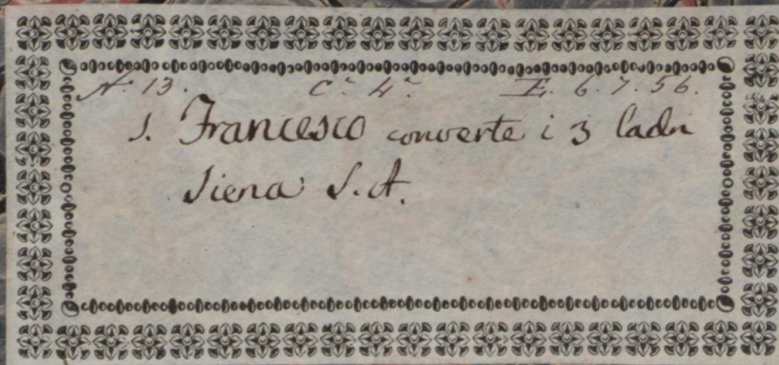 N. 13. C.ª 4.ª E. 6. 7. 56.
S. Francesco converte i 3 ladri
Siena S. A.